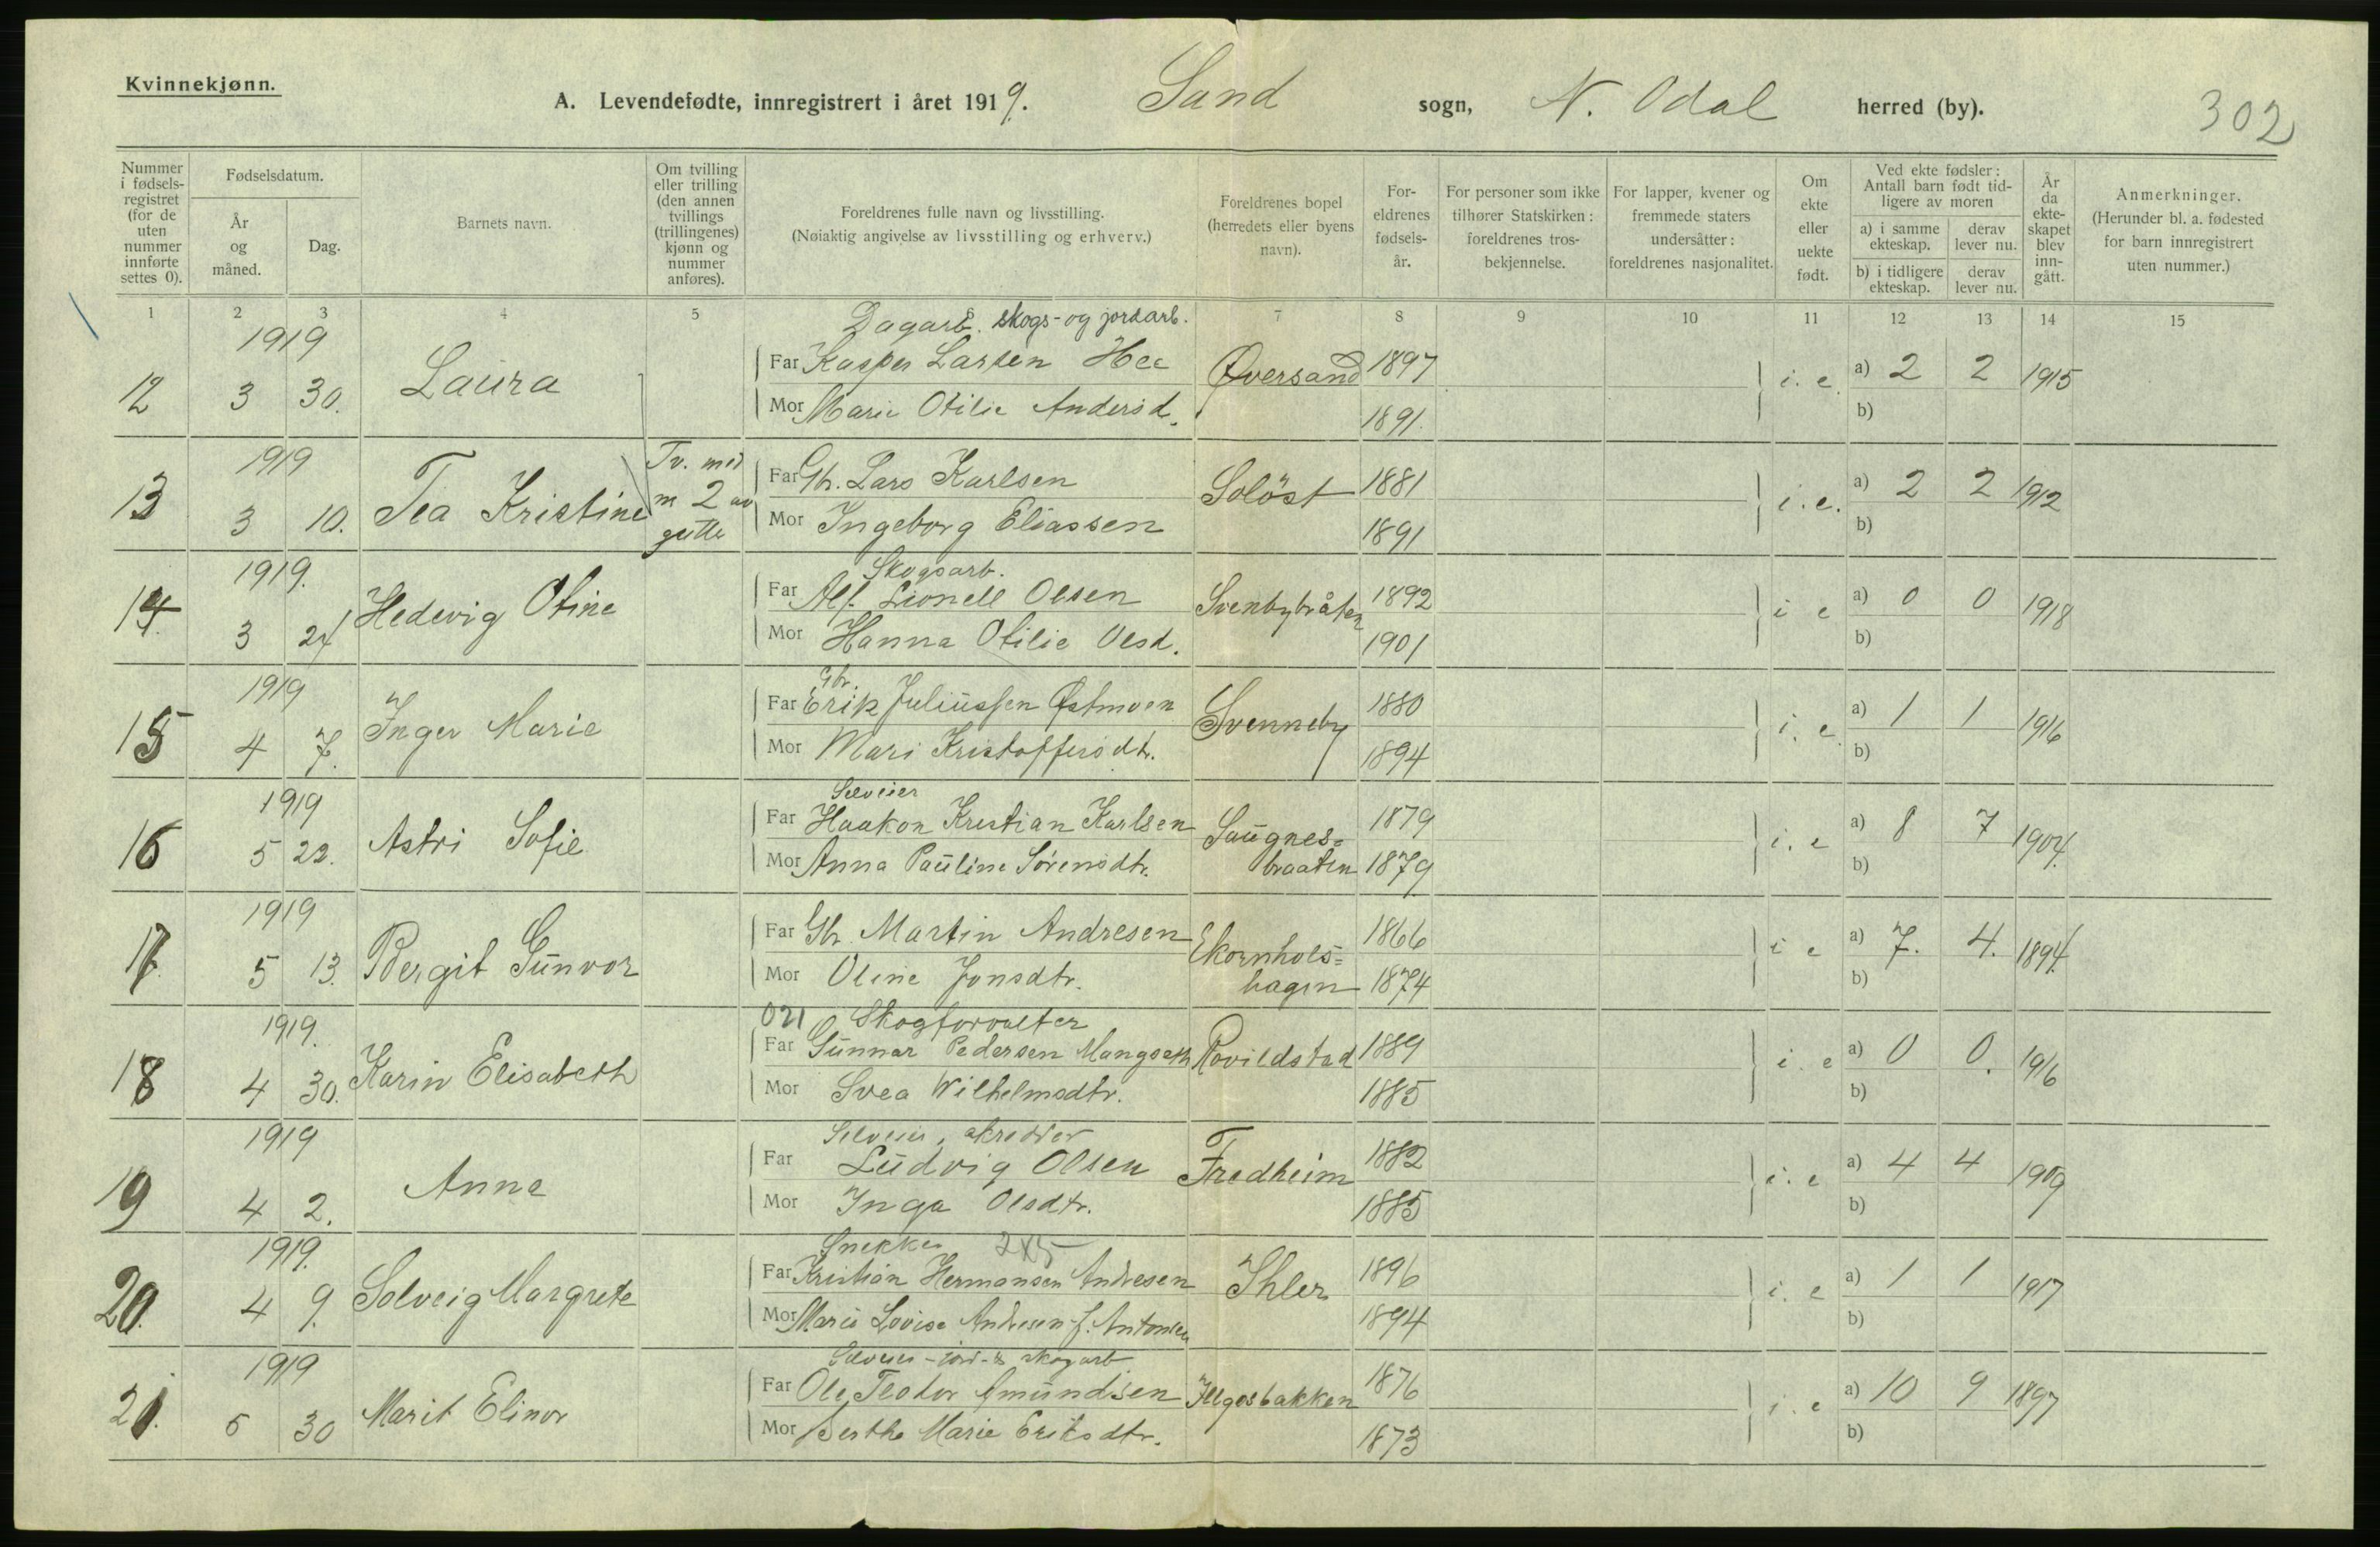 Kvinnekjønn.
A. Levendefødte, innregistrert i året 1919. Sand sogn, N. Odal herred (by).
302
Nummer i fødselsregistret (for de uten nummer innførte settes 0).
Fødselsdatum.
År og måned.
Dag.
Barnets navn.
Om tvilling eller trilling (den annen tvillings (trillingenes) kjønn og nummer anføres).
Foreldrenes fulle navn og livsstilling.
(Nøiaktig angivelse av livsstilling og erhverv.)
Foreldrenes bopel (herredets eller byens navn).
Foreldrenes fødselsår.
For personer som ikke tilhører Statskirken: foreldrenes trosbekjennelse.
For lapper, kvener og fremmede staters undersåtter: foreldrenes nasjonalitet.
Om ekte eller uekte født.
Ved ekte fødsler: Antall barn født tidligere av moren
a) i samme ekteskap.
derav lever nu.
b) i tidligere ekteskap.
derav lever nu.
År da ekteskapet blev inngått.
Anmerkninger.
(Herunder bl. a. fødested for barn innregistrert uten nummer.)
1 2 3 4 5 7 8 9 10 11 12 13 14 15
1919 Dagarb. skogs- og jordarb.
12 3 30. Laura Far Kasper Larsen Hee Øversand 1897 i. e. a) 2 2 1915
Mor Marie Otilie Andersd. 1891. b)
1919 Tv. med
13 3 10. Tea Kristine m 2 av gutte Far Gbr. Lars Karlsen Soløst 1881 i. e. a) 2 2 1912
Mor Ingeborg Eliassen 1891 b)
1919. Skogsarb.
14. 3 24 Hedevig Otine Far Alf. Lionell Olsen Svenbybråten 1892 i e a) 0 0 1918
Mor Hanna Otilie Olsd. 1901 b)
1919 Gbr.
15 4 7. Inger Marie Far Erik Juliussen Østmoen Svenneby 1880 i. e. a) 1 1 1916
Mor Mari Kristoffersdtr. 1894 b)
1919 Selveier
16 5 22. Astri Sofie Far Haakon Kristian Karlsen Saugnes= braaten 1879 i. e a) 8 7 1904.
Mor Anna Pauline Sørensdtr. 1879 b)
1919
17. 5 13. Bergit Gunvor Far Gbr. Martin Andresen Ekornhols= hagen 1866 i e a) 7. 4. 1894.
Mor Oline Jonsdtr. 1874 b)
1919. 021 Skogforvalter
18 4 30. Karin Elisabeth Far Gunnar Pedersen Mangseth Rovildstad 1889 i. e a) 0 0. 1916
Mor Svea Wilhelmsdtr. 1885 b)
1919 Selveier, skrædder
19 4 2. Anna Far Ludvig Olsen Fredheim 1882 i. e a) 4 4 1909
Mor Inga Olsdtr. 1885 b)
1919. Snekker 2X5
20. 4 9. Solveig Margrete Far Kristian Hermansen Andresen Ihler 1896 i. e a) 1 1 1917
Mor Marie Lovise Andresen f. Antonsen 1894 b)
1919 Selveier - jord- & skogarb
21. 5 30 Marit Elinor Far Ole Teodor Amundsen Illgosbakken 1876 i. e a) 10 9 1897
Mor Berthe Marie Eriksdtr. 1873 b)